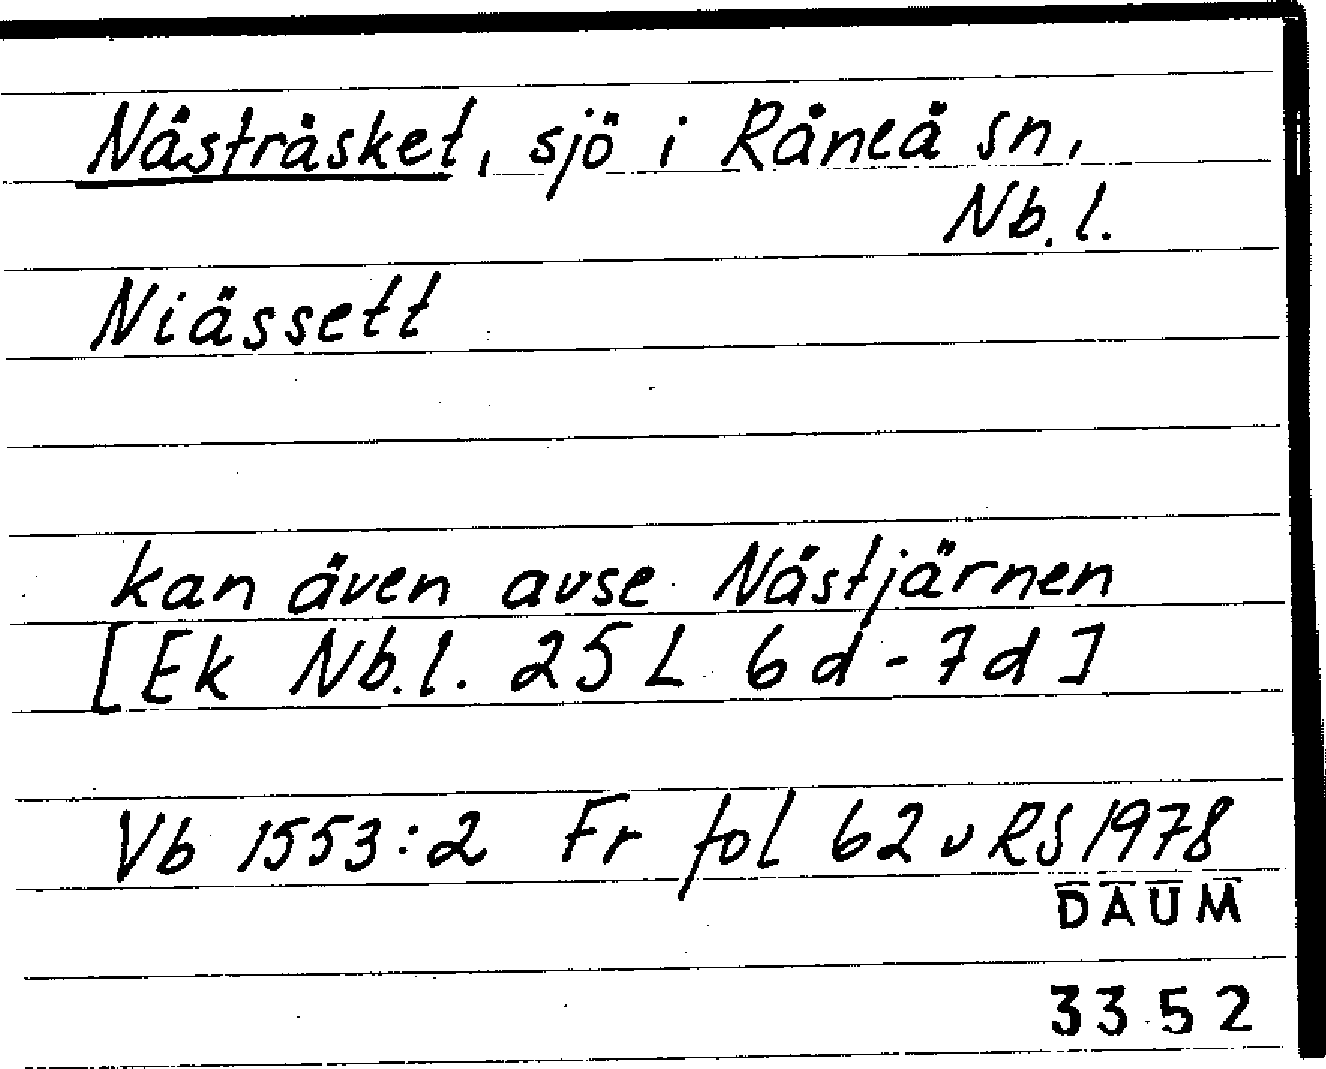 Nåsträsket, sjö i Råneå sn,
Nb. l.
Niässett
kan även avse Nåstjärnen
[Ek Nb.l. 25 L 6d-7d]
Vb 1553:2 Fr fol 62 v RS 1978
DAUM
3352